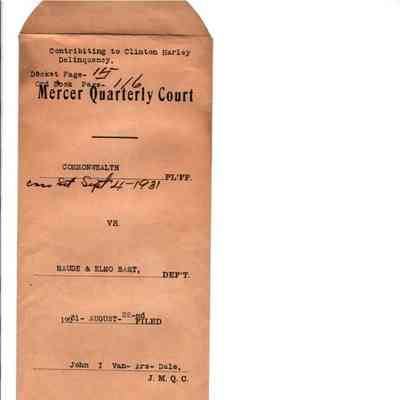 Contribiting to Clinton Harley
Delinquency.
Docket Page- 15
Ord Book Page- 116
Mercer Quarterly Court
COMMONWEALTH
PL'FF.
Set Sept 4-1931
VS.
MAUDE & ELMO HART, DEF'T.
1931- AUGUST- 22-nd FILED
John I Van- Ars- Dale,
J. M. Q. C.